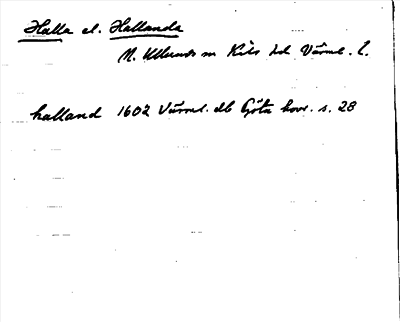 Halla el. Hallanda
N. Ullerud sn Kils hd Värml. l.
halland 1602 Värml. db Göta hovr. s. 28